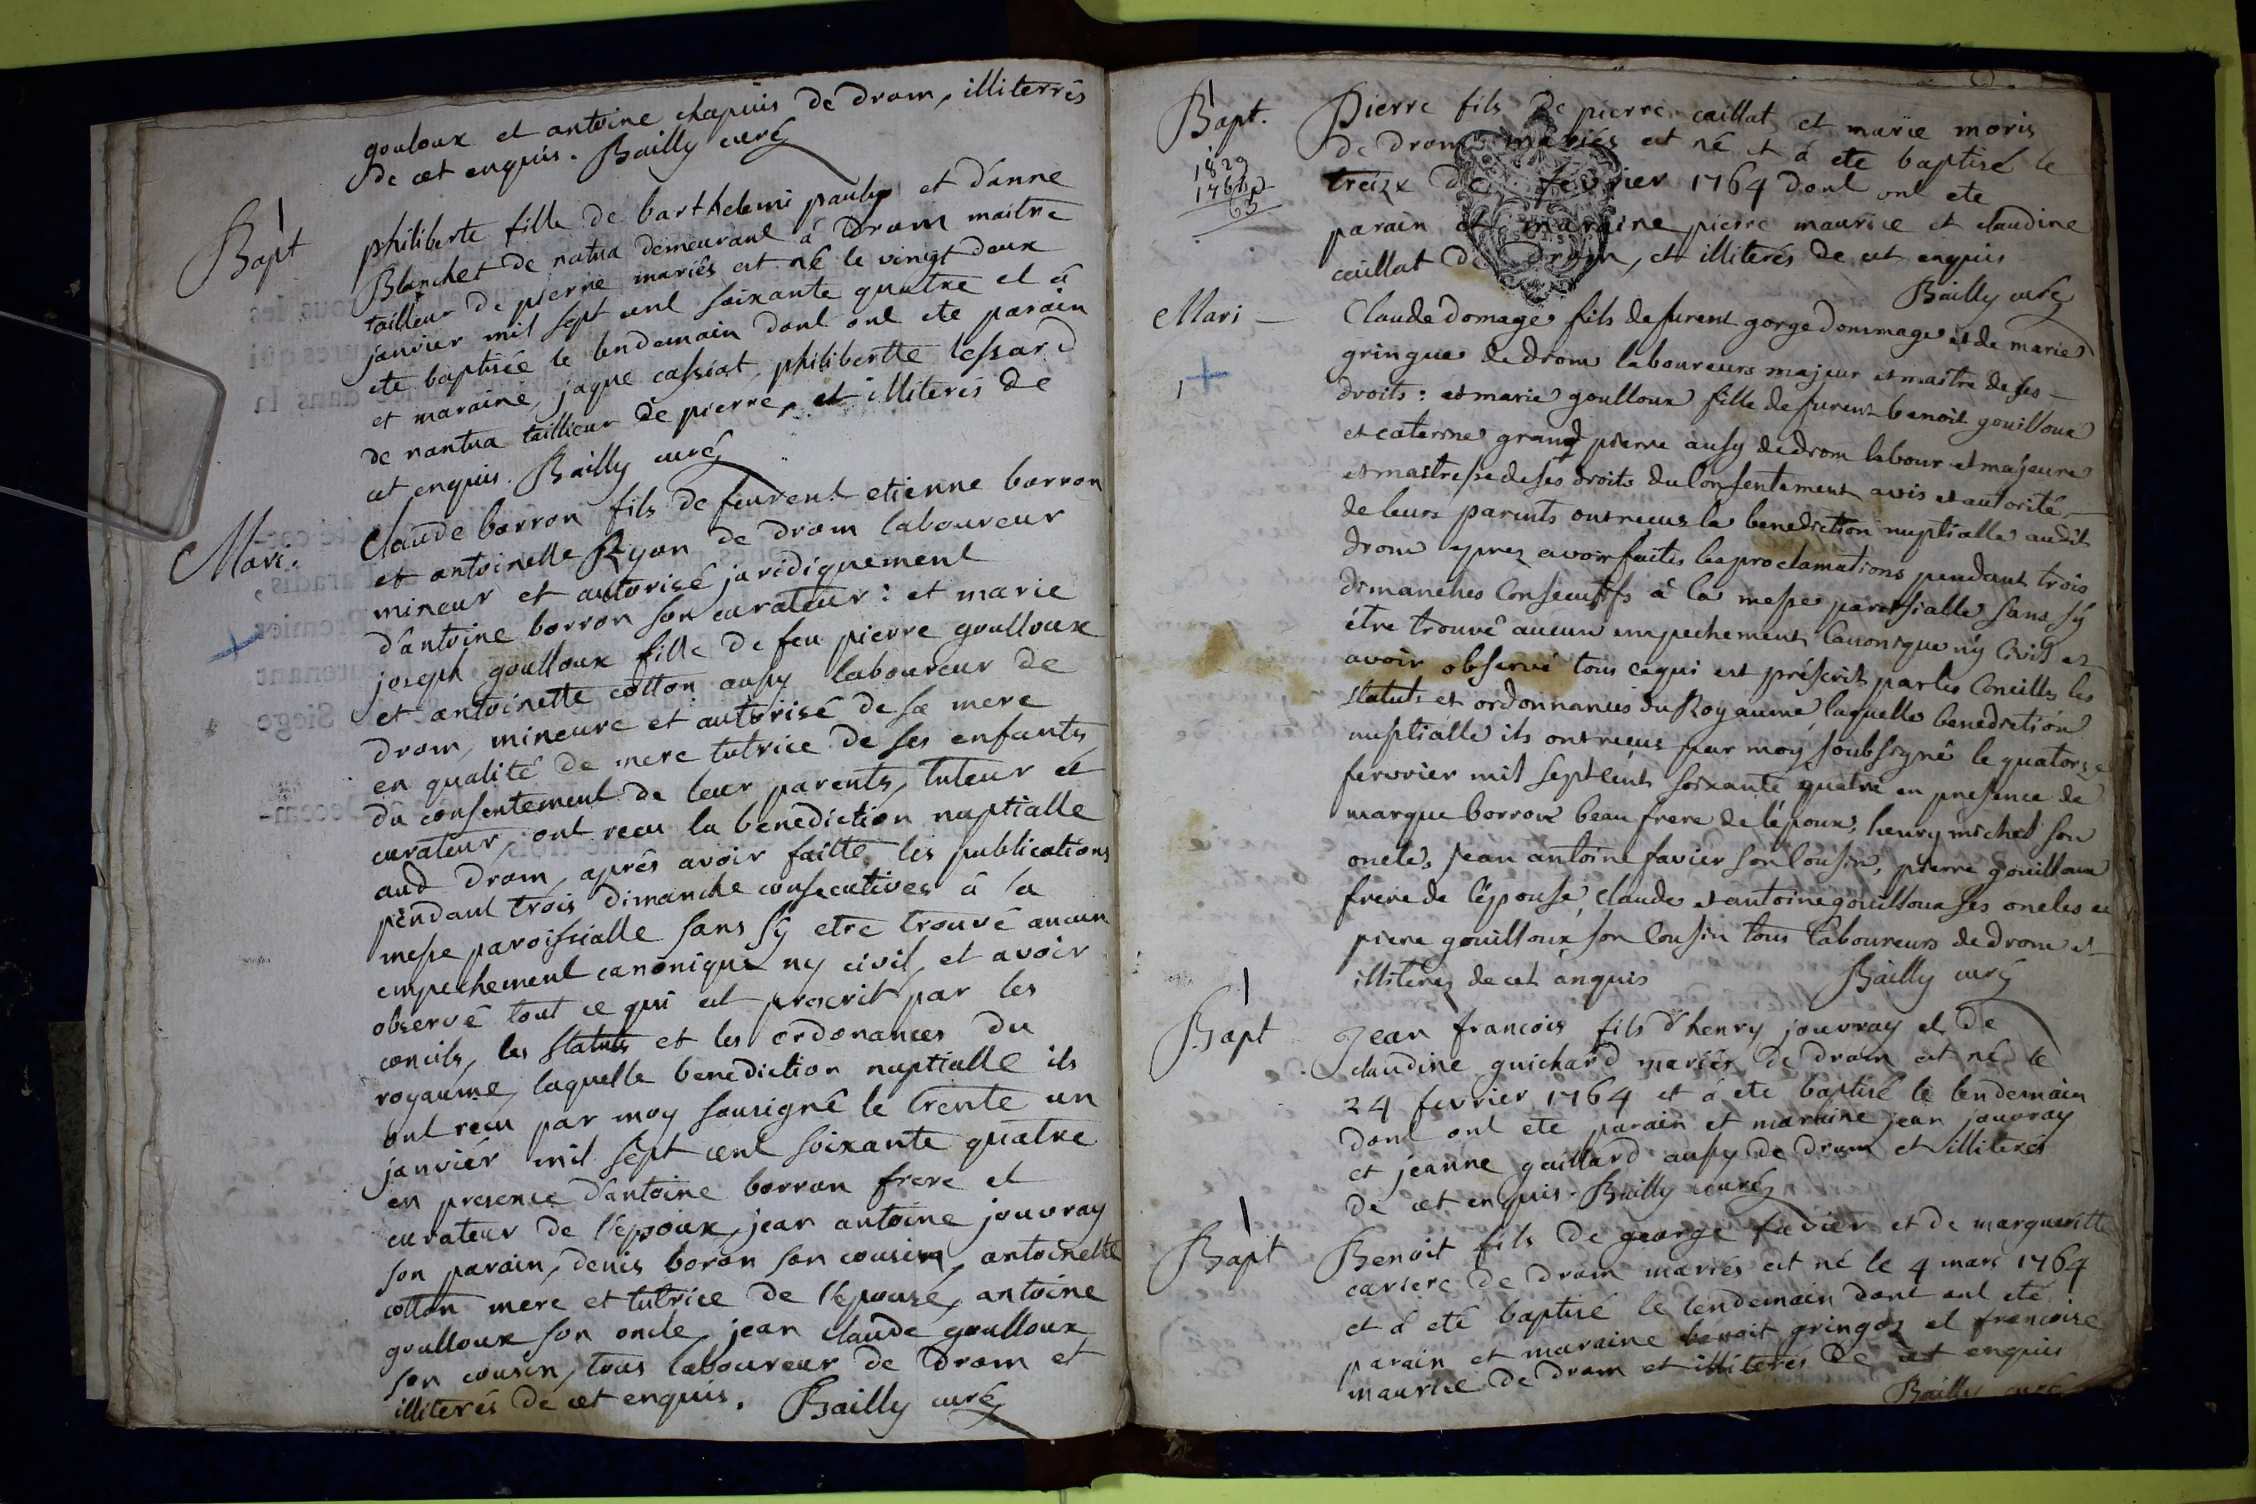 gouloux et antoine chapuis de drom, illiterrés
de cet enquis. Bailly curé
Bapt
philiberte fille de barthelemi pauly et d'anne
Blanchet de natua demeurant à Drom maitre
tailleur de pierre mariés est né le vingt deux
janvier mil sept cent soixante quatre et á
ete baptisée le lendemain dont ont ete parain
et maraine, jaque cassiat, philibertte lessard
de nantua taillieur de pierre, et illiterés de
cet enquis. Bailly curé
Mari.
Claude borron fils de feurent etienne borron
et antoinelle Ryon de drom laboureur
mineur et autorisé jaridiquement
d'antoine borron son curateur : et marie
joseph goulloux fille de feu pierre goulloux
et antoinette cotton aussy laboureur de
drom, mineure et autorisé de sa mere
en qualité de mere tutrice de ses enfants
du consentement de leur parents, tuteur et
curateur, ont recu la benediction nuptialle
aud drom, aprés avoir faitte les publications
pendant trois dimanche consecutives á la
messe paroissialle sans sÿ etre trouvé aucun
empechement canonique ny civil, et avoir
observé tout ce qui est prescrit par les
concils, les statuts et les ordonances du
royaume, laquelle benediction nuptialle ils
ont recu par moy sousigné le trente un
janvier mil sept cent soixante quatre
en presence d'antoine borron frere et
curateur de l'epoux, jean antoine jouvray
son parain, denis boron son cousin, antoinette
cotton mere et tutrice de l'epouse, antoine
goulloux son oncle, jean claude goulloux
son cousin, tous laboureur de drom et
illiterés de cet enquis. Bailly curé
Bapt.
1829
1764
65
Pierre fils de pierre caillat et marie moris
de drom mariés est né et á ete baptisé le
treize de fevrier 1764 dont ont ete
parain et maraine pierre maurice et claudine
caillat de drom, et illiterés de cet enquis
Bailly curé
Mari
Claude domage fils de furent gorge dommage et de marie
gringue de drom laboureurs majeur et maitre de ses
droits : et marie goulloux fille de furent benoit gouilloux
et caterine grand pierre aussy de drom labour et majeure
et maitresse de ses droits du Consentement avis et autorité
de leurs parents ont recus la benediction nuptialle audit
drom aprez avoir faites les proclamations pendant trois
dimanches Consecutifs á la messe paroissialle sans sÿ
être trouvé aucun empechement Canonique nÿ Civil et
avoir observé tous ce qui est préscrit par les Concilles les
statuts et ordonnances du Royaume, laquelle benediction
nuptialle ils ont recus par moÿ soubsigné le quatorze
fervrier mil sept cent soixante quatre en presence de
marque borron beau frere de l'époux, henry michel son
oncle, jean antoine favier son Cousin, pierre gouilloux
frere de l'épouse, claude et antoine gouilloux ses oncles et
piere gouilloux son Cousin tous laboureurs de drom et
illiterez de cet anquis Bailly curé
Bapt
Jean francois fils d'henry jouvray et de
claudine guichard mariés de drom est né le
24 fevrier 1764 et á ete baptisé le lendemain
dont ont ete parain et maraine jean jouvray
et jeanne gaillard aussy de drom et illiterés
de cet enquis. Bailly curé
Bapt
Benoit fils de george favier et de margueritte
cariere de drom mariés est né le 4 mars 1764
et á eté baptisé le lendemain dont ont eté
parain et maraine benoit gringoz et francoise
maurice de drom et illiterés de cet enquis
Bailly curé